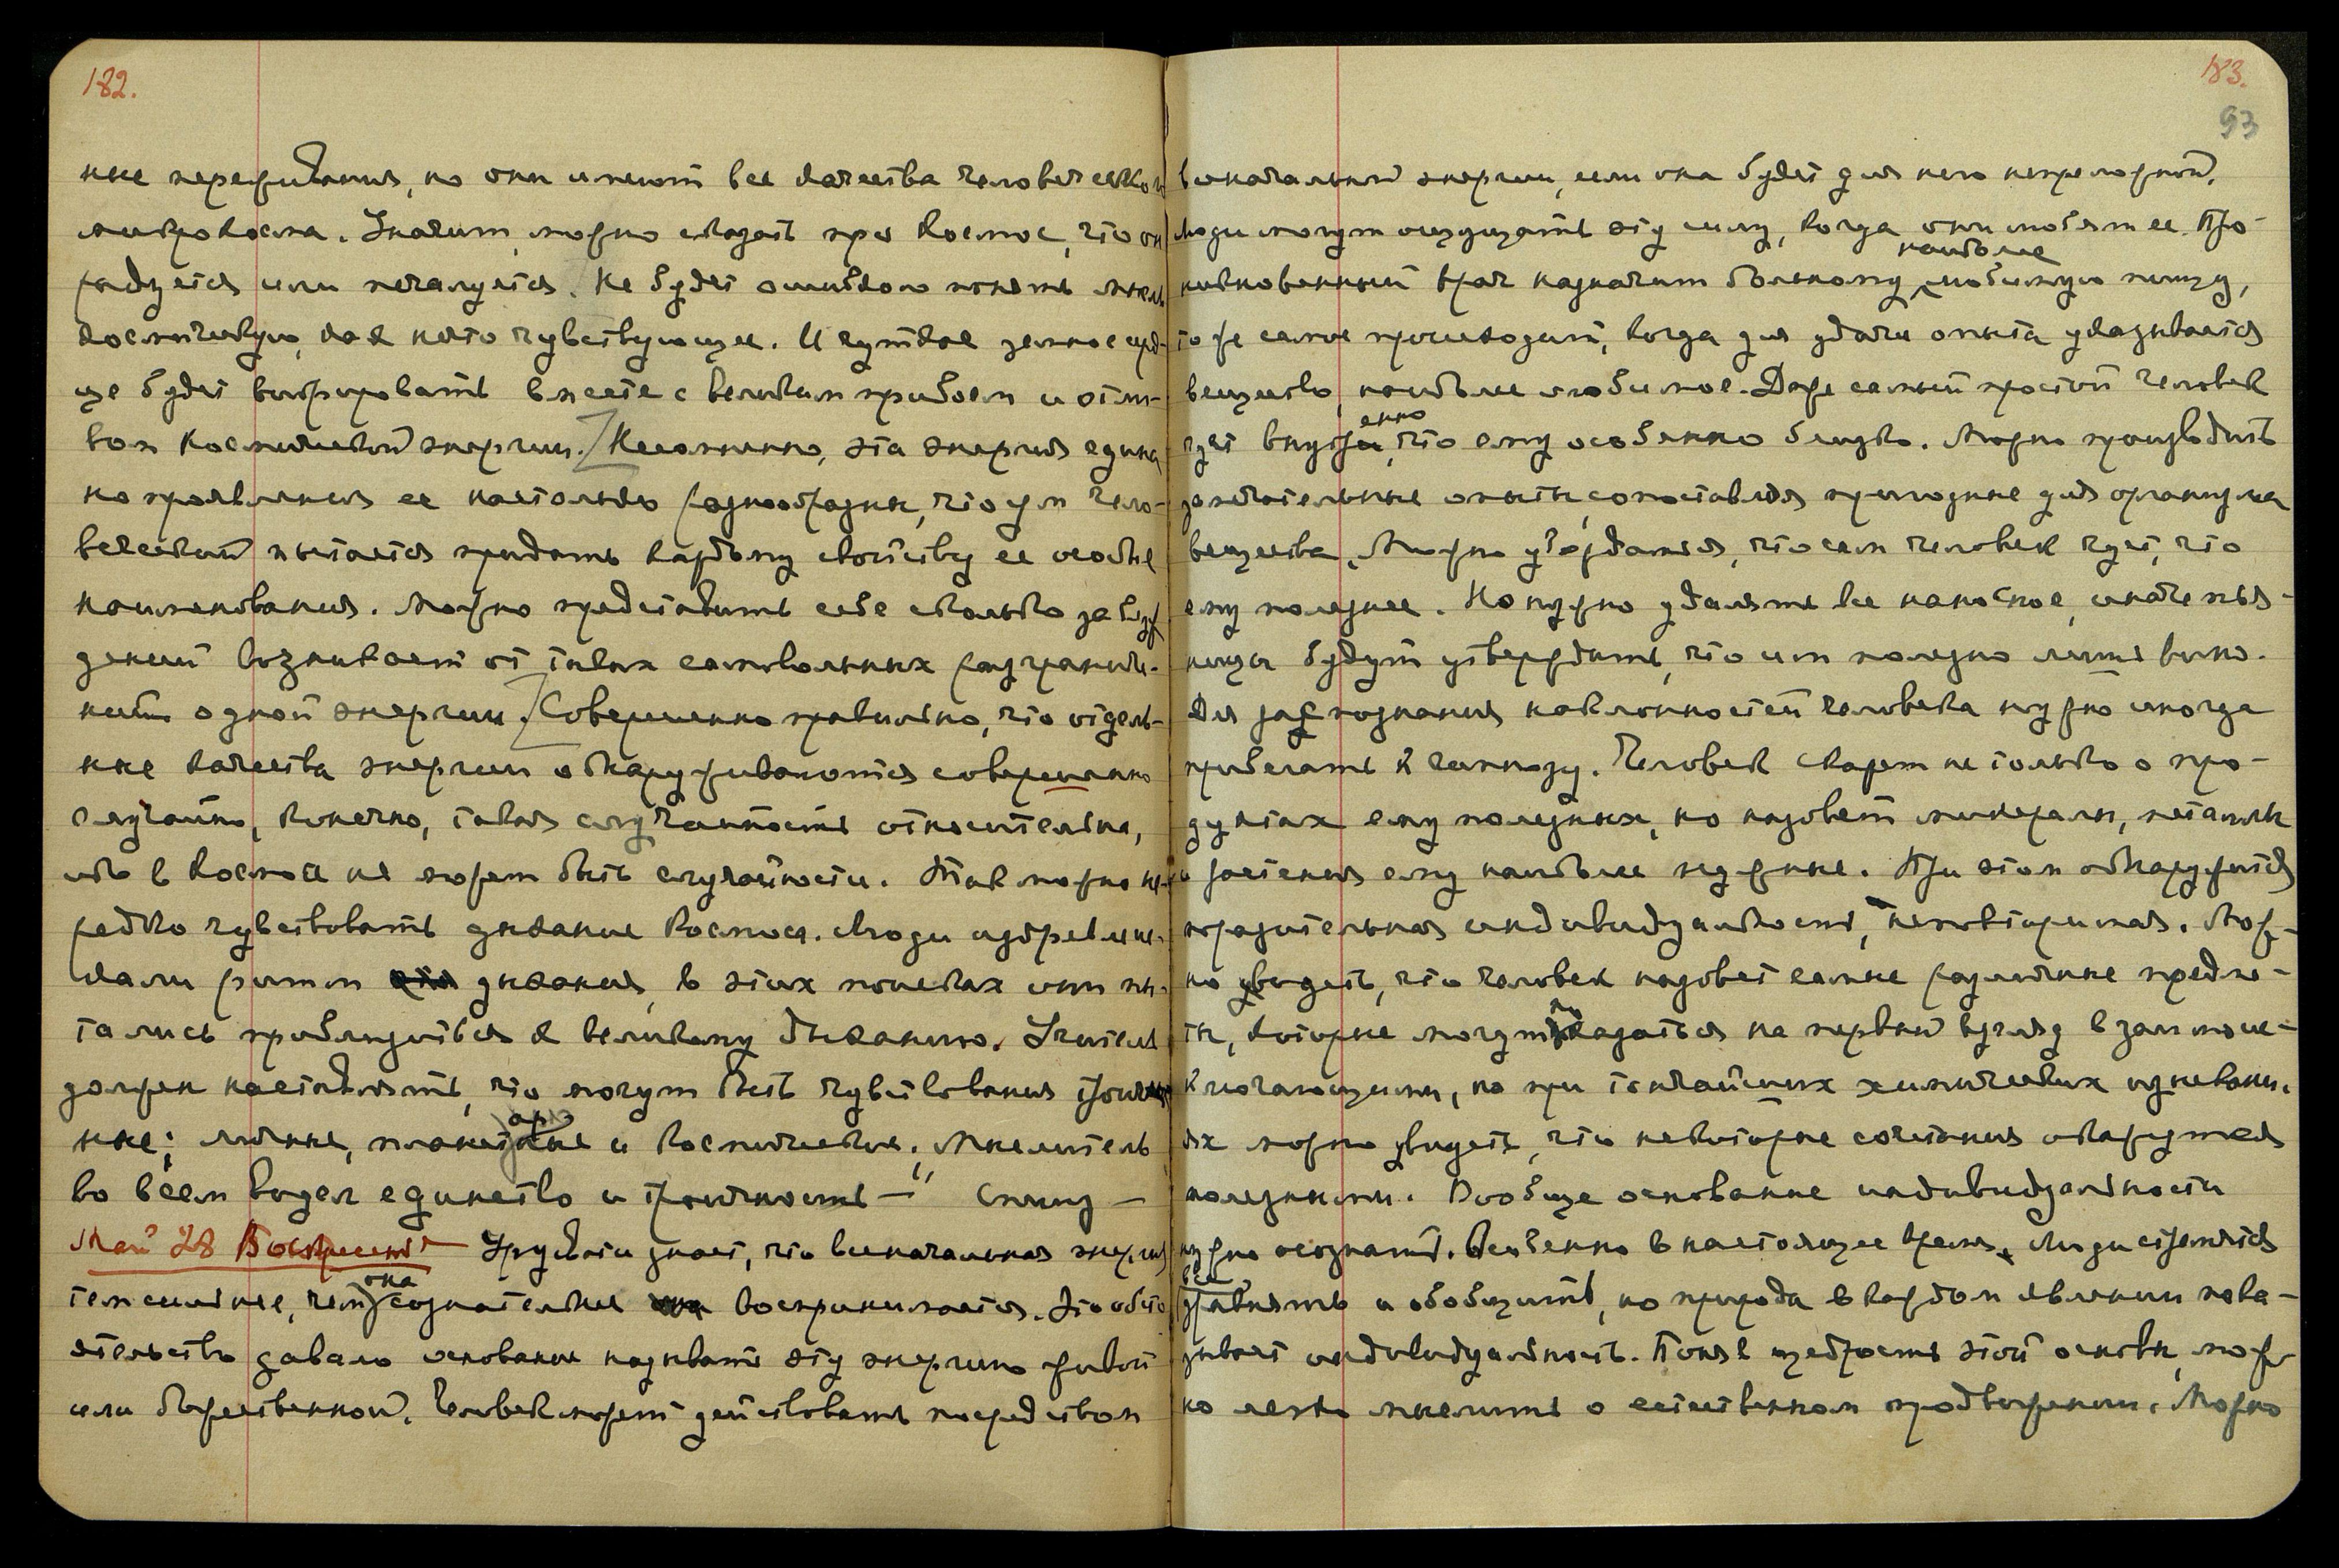 182.
ные переживания, но они имеют все качества человеческого
микрокосма. Значит, можно сказать про Космос, что он
радуется или печалуется. Не будет ошибкою понять мысль
космическую, как нечто чувствующее. И чуткое земное серд-
це будет вибрировать вместе с великим прибоем и отли-
вом Космической энергии. Несомненно, эта энергия едина
но проявления ее настолько разнообразны, что ум чело-
веческий пытается придать каждому свойству ее особые
наименования. Можно представить себе сколько заблуж
дений возникает от таких самовольных разграниче-
ний одной энергии. Совершенно правильно, что отдель-
ные качества энергии обнаруживаются совершенно
случайно, конечно, такая случайность относительна,
ибо в Космосе не может быть случайности. Так можно не-
редко чувствовать дыхание Космоса. Люди издревле ис-
кали ритм дыхания, в этих поисках они пы-
тались приблизиться к великому Дыханию. Учитель
должен наставлять, что могут быть чувствования троич
ные: личные, планетарные и космические. Мыслитель
во всем видел единство и троичность —" Спишу —
Май 28 Воскресен. — Урусвати знает, что всеначальная энергия
тем сильнее, чем она сознательнее воспринимается. Это обсто
ятельство давало основание называть эту энергию живой
или божественной. Человек может действовать посредством
183.
93
всеначальной энергии, если она будет для него непреложной.
Люди могут ощущать эту силу, когда они любят ее. Про-
никновенный врач назначит больному наиболее любимую пищу,
то же самое происходит, когда для удачи опыта указывается
вещество, наиболее любимое. Даже самый простой человек
чует внутренно, что ему особенно близко. Можно производить
замечательные опыты, сопоставляя пригодные для организма
вещества. Можно убеждаться, что сам человек чует, что
ему полезнее. Но нужно удалять все наносное, иначе пья-
ницы будут утверждать, что им полезно лишь вино.
Для распознания наклонностей человека нужно иногда
прибегать к гипнозу. Человек скажет не только о про-
дуктах ему полезных, но назовет минералы, металлы
и растения ему наиболее нужные. При этом обнаружится
поразительная индивидуальность, неповторимая. Мож-
но увидеть, что человек назовет самые различные предме-
ты, которые могут показаться на первый взгляд взаимоис-
ключающими, но при тончайших химических изысканиях
можно увидеть, что некоторые сочетания окажутся
полезными. Вообще основание индивидуальности
нужно осознать. Особенно в настоящее время. Люди стремятся
все уравнять и обобщить, но природа в каждом явлении пока-
зывает индивидуальность. Поняв щедрость этой основы, мож-
но легко мыслить о естественном продвижении. Можно